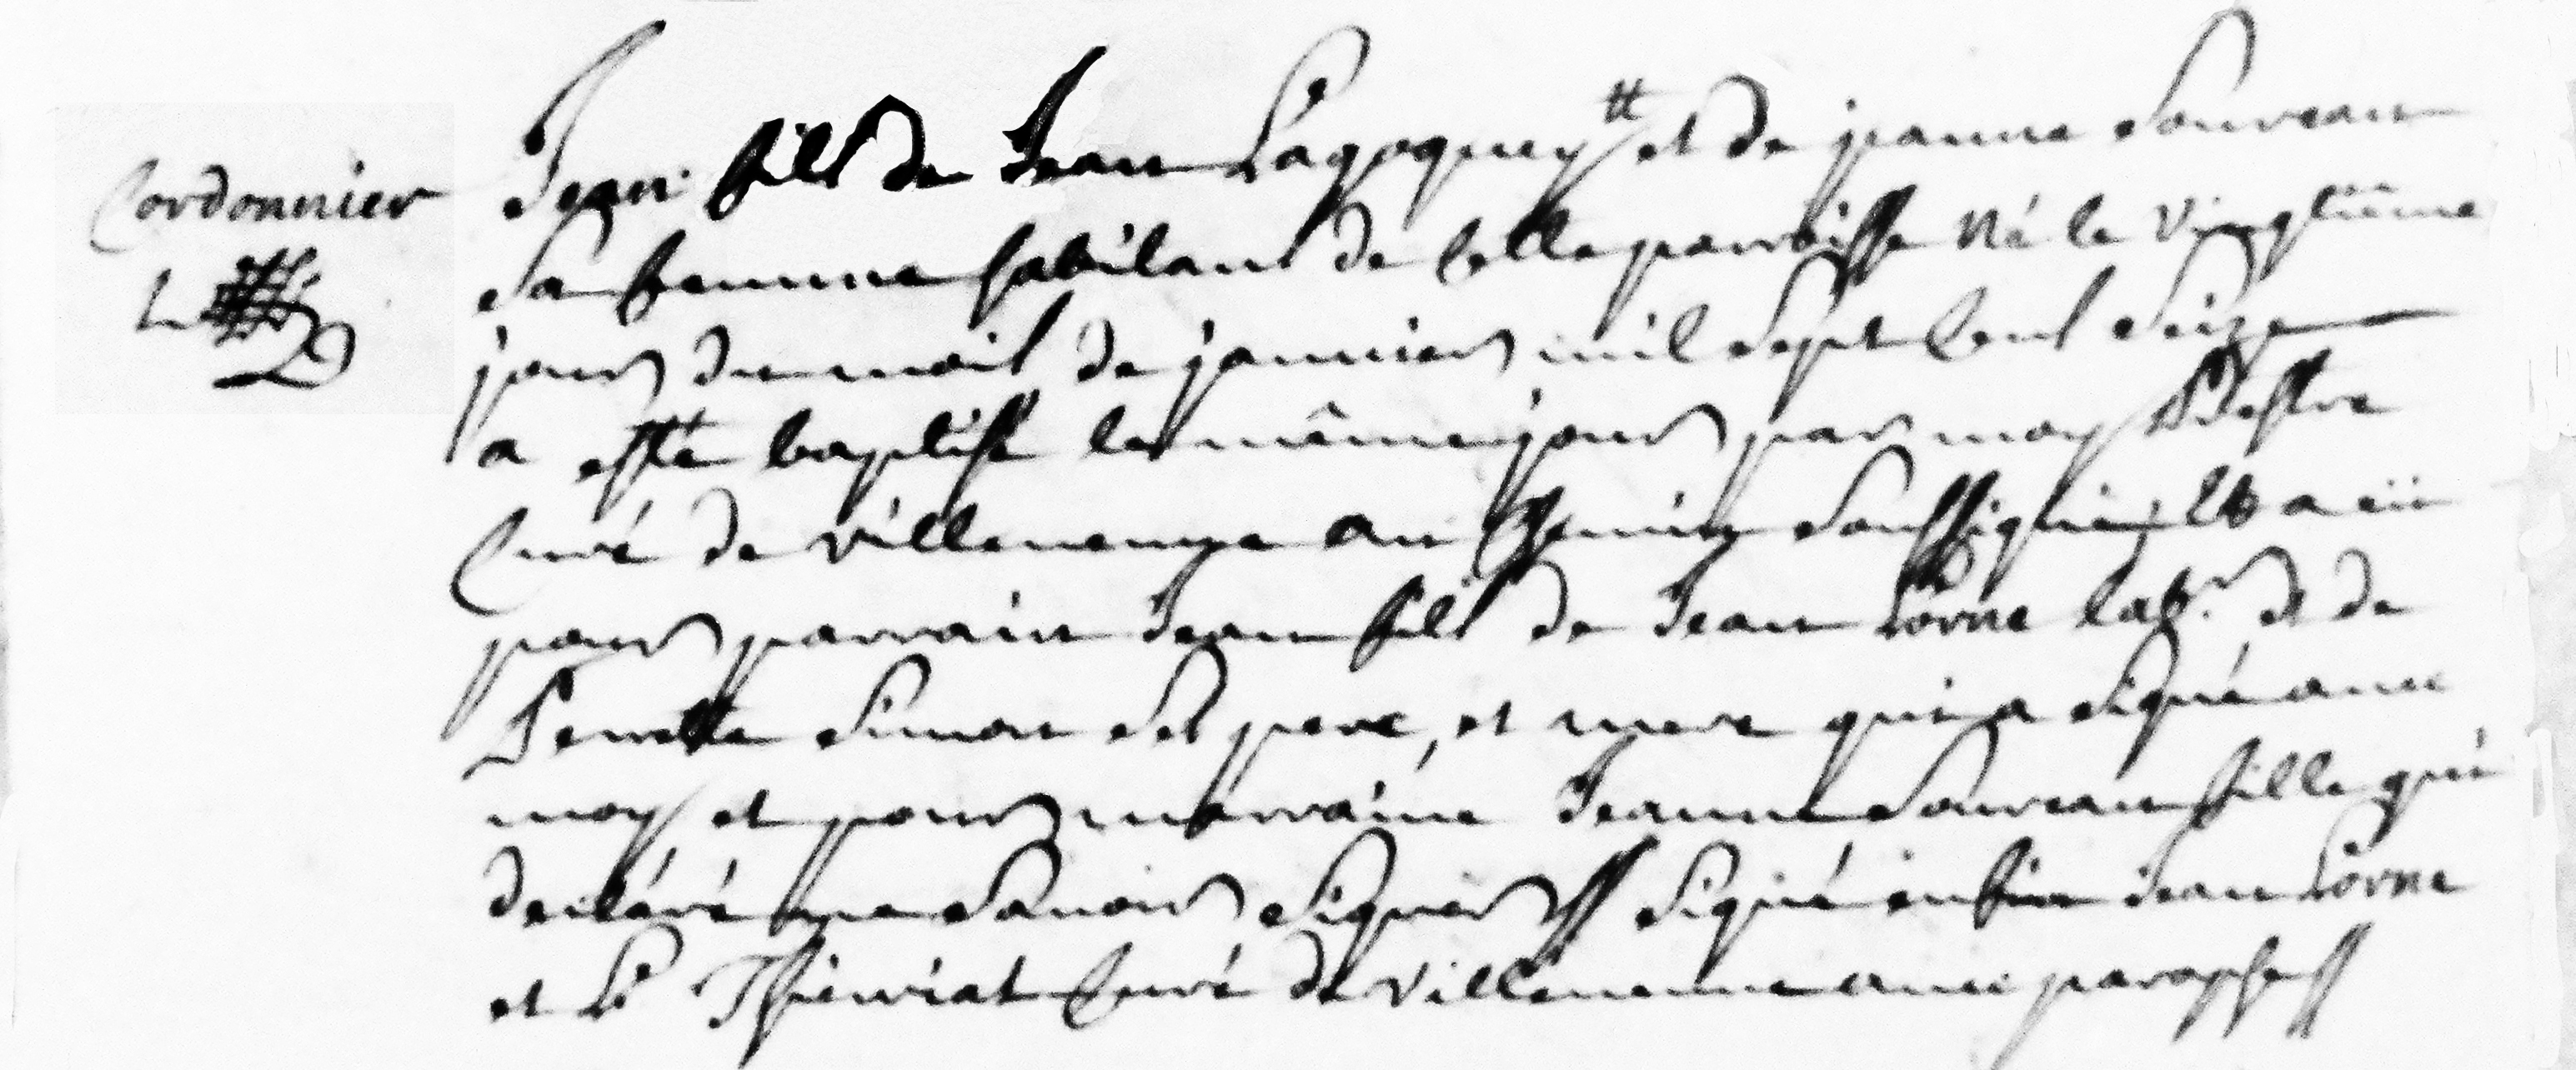 Cordonnier
Jean fils de Jean Lagoguey tt et de jeanne Souveau
Sa femme habitans de Cette parroisse né le vingtiéme
jour du mois de janvier mil sept Cent Seize
a esté baptisé le même jour par moy Prestre
Curé de villeneuve au Chemin Soussigné, Et a eü
pour parrain Jean fils de Jean Lorne lab.r et de
Perrette Simon Ses pere, et mere qui a Signé avec
moy et pour marraine Jeanne Souveau fille qui
declaré ne Savoir Signer // Signé enfin Jean Lorne
et L. Thierriat Curé de villeneuve avec paraphe //